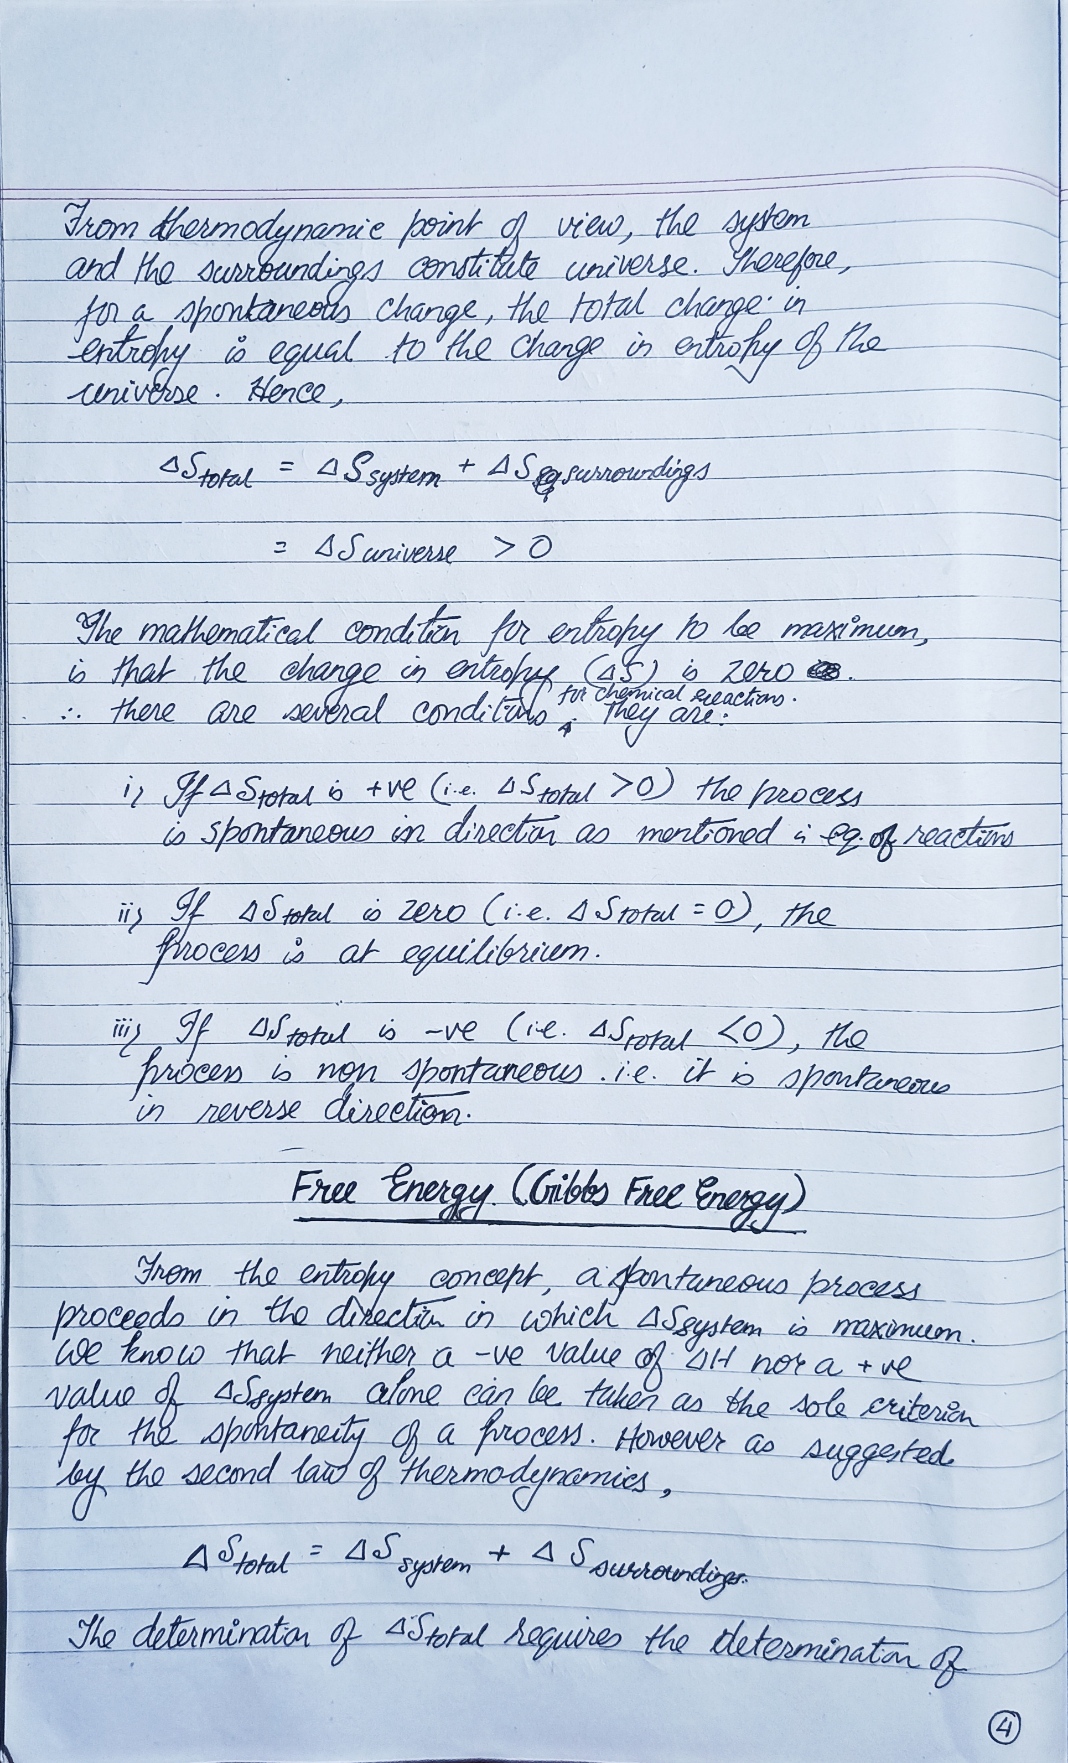 From thermodynamic point of view, the system
and the surroundings constitute universe. Therefore,
for a spontaneous change, the total change in
entropy is equal to the change in entropy of the
universe. Hence,
ΔStotal = ΔSsystem + ΔSsurroundings
= ΔSuniverse > 0
The mathematical condition for entropy to be maximum,
is that the change in entropy (ΔS) is zero.
for chemical reactions.
∴ there are several conditions. They are:
i) If ΔStotal is +ve (i.e. ΔStotal > 0) the process
is spontaneous in direction as mentioned in eq. of reactions
ii) If ΔStotal is zero (i.e. ΔStotal = 0), the
process is at equilibrium.
iii) If ΔStotal is -ve (i.e. ΔStotal < 0), the
process is non spontaneous. i.e. it is spontaneous
in reverse direction.
Free Energy (Gibbs Free Energy)
From the entropy concept, a spontaneous process
proceeds in the direction in which ΔSsystem is maximum.
We know that neither a -ve value of ΔH nor a +ve
value of ΔSsystem alone can be taken as the sole criterion
for the spontaneity of a process. However as suggested
by the second law of thermodynamics,
ΔStotal = ΔSsystem + ΔSsurroundings.
The determination of ΔStotal requires the determination of
4